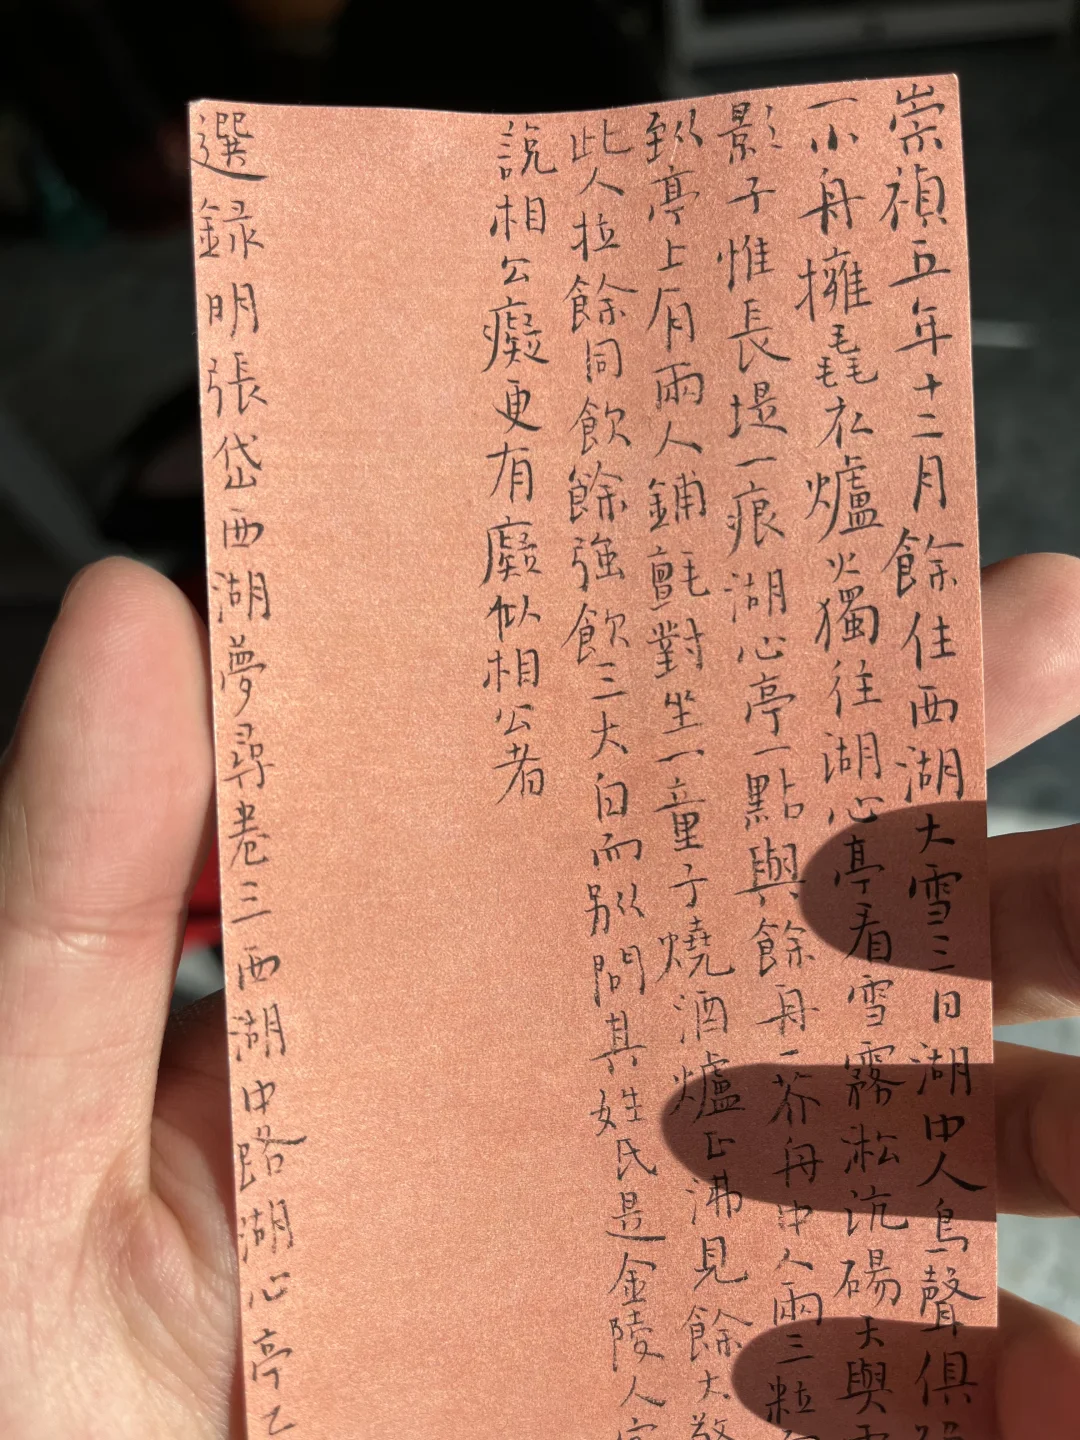 崇禎五年十二月餘住西湖大雪三日湖中人鳥聲俱
一小舟擁毳衣爐火獨往湖心亭看雪霧淞沆碭天與
影子惟長堤一痕湖心亭一點與餘舟一芥舟中人兩三粒
到亭上有兩人鋪氈對坐一童子燒酒爐正沸見餘大驚
此人拉餘同飲餘強飲三大白而別問其姓氏是金陵人
說相公癡更有癡似相公者
選録明張岱西湖夢尋卷三西湖中路湖心亭乙